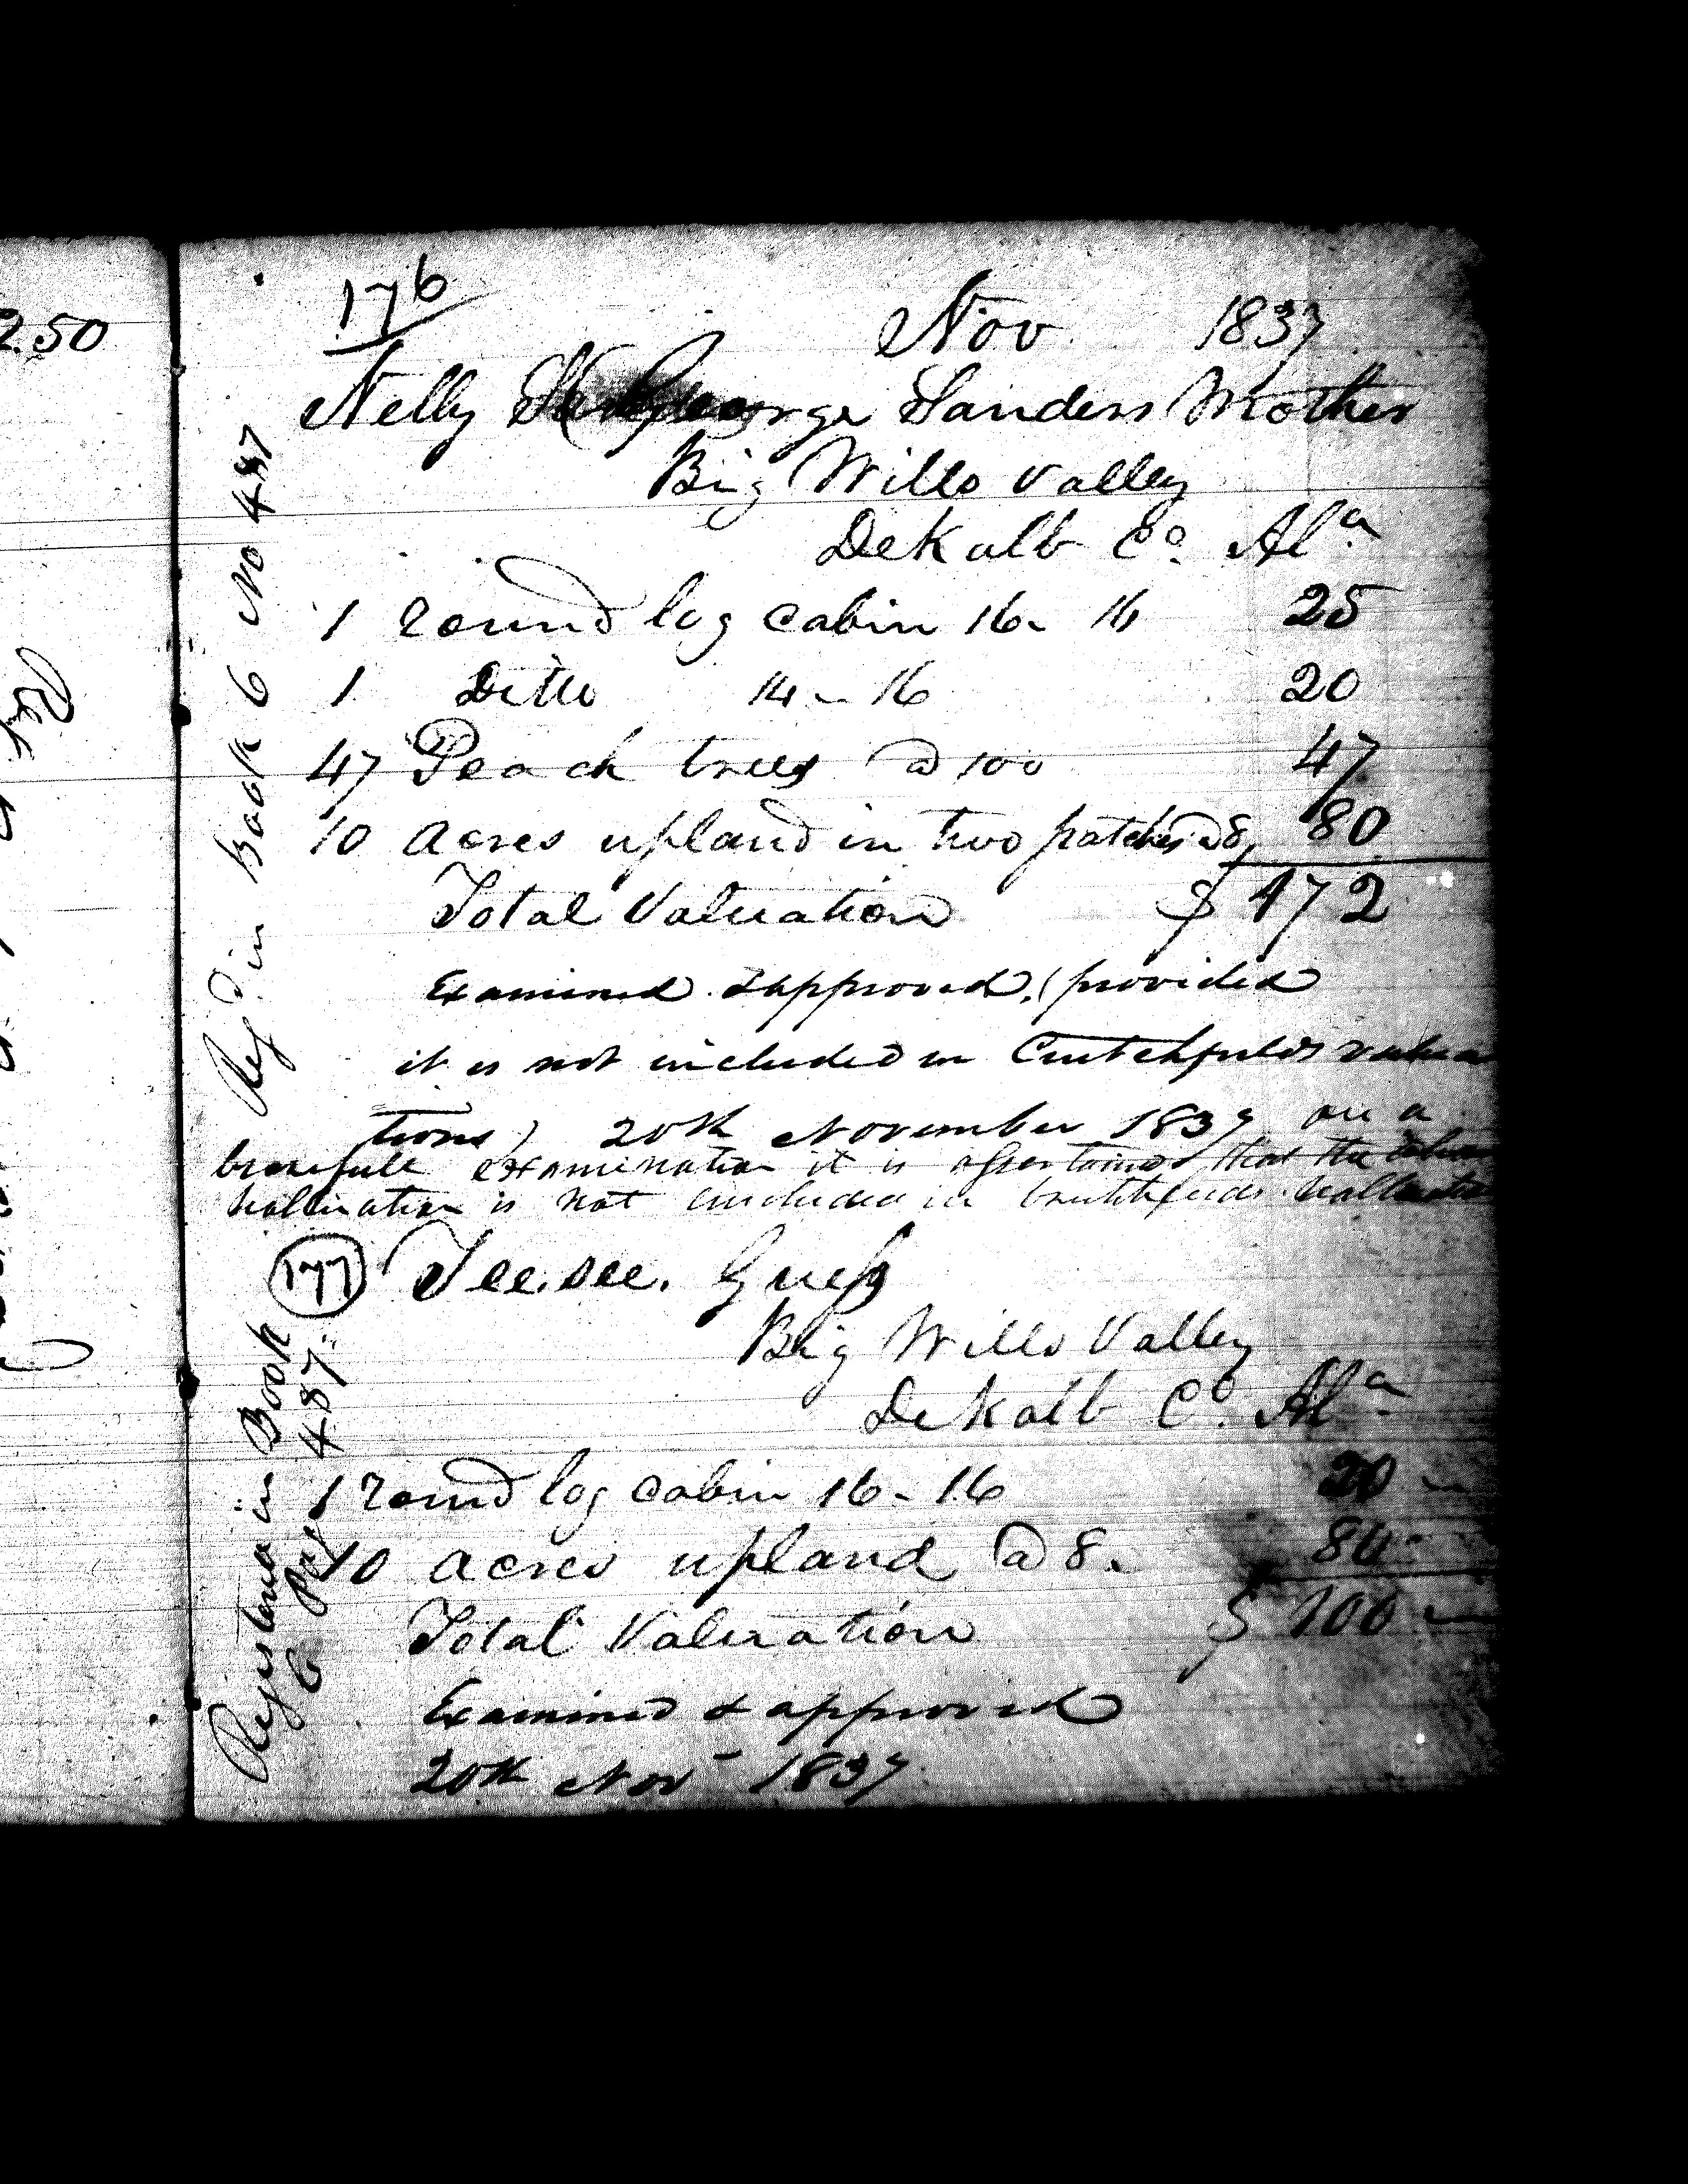 2.50
176
Nov 1837
Nelly George Sanders Mother
Big Wills Valley
DeKalb Co. Ala
1 round log cabin 16 - 16 25
1 Ditto 14 - 16 20
47 Peach trees @ 100 47
10 acres upland in two patches @ 8, 80
Total Valuation $ 172
Examined & approved, (provided
it is not included in Crutchfields valua
tions) 20th November 1837 on a
carefull examination it is assertained that the
valluation is not included in Crutchfields valluation
Regd in Book 6 No 487
177 Tee.see. Guess
Big Wills Valley
DeKalb Co. Ala
1 round log cabin 16 - 16 20
10 acres upland @ 8. 80
Total Valuation $ 100
Examined & approved
20th Nov 1837
Registered in Book
6 Page 487